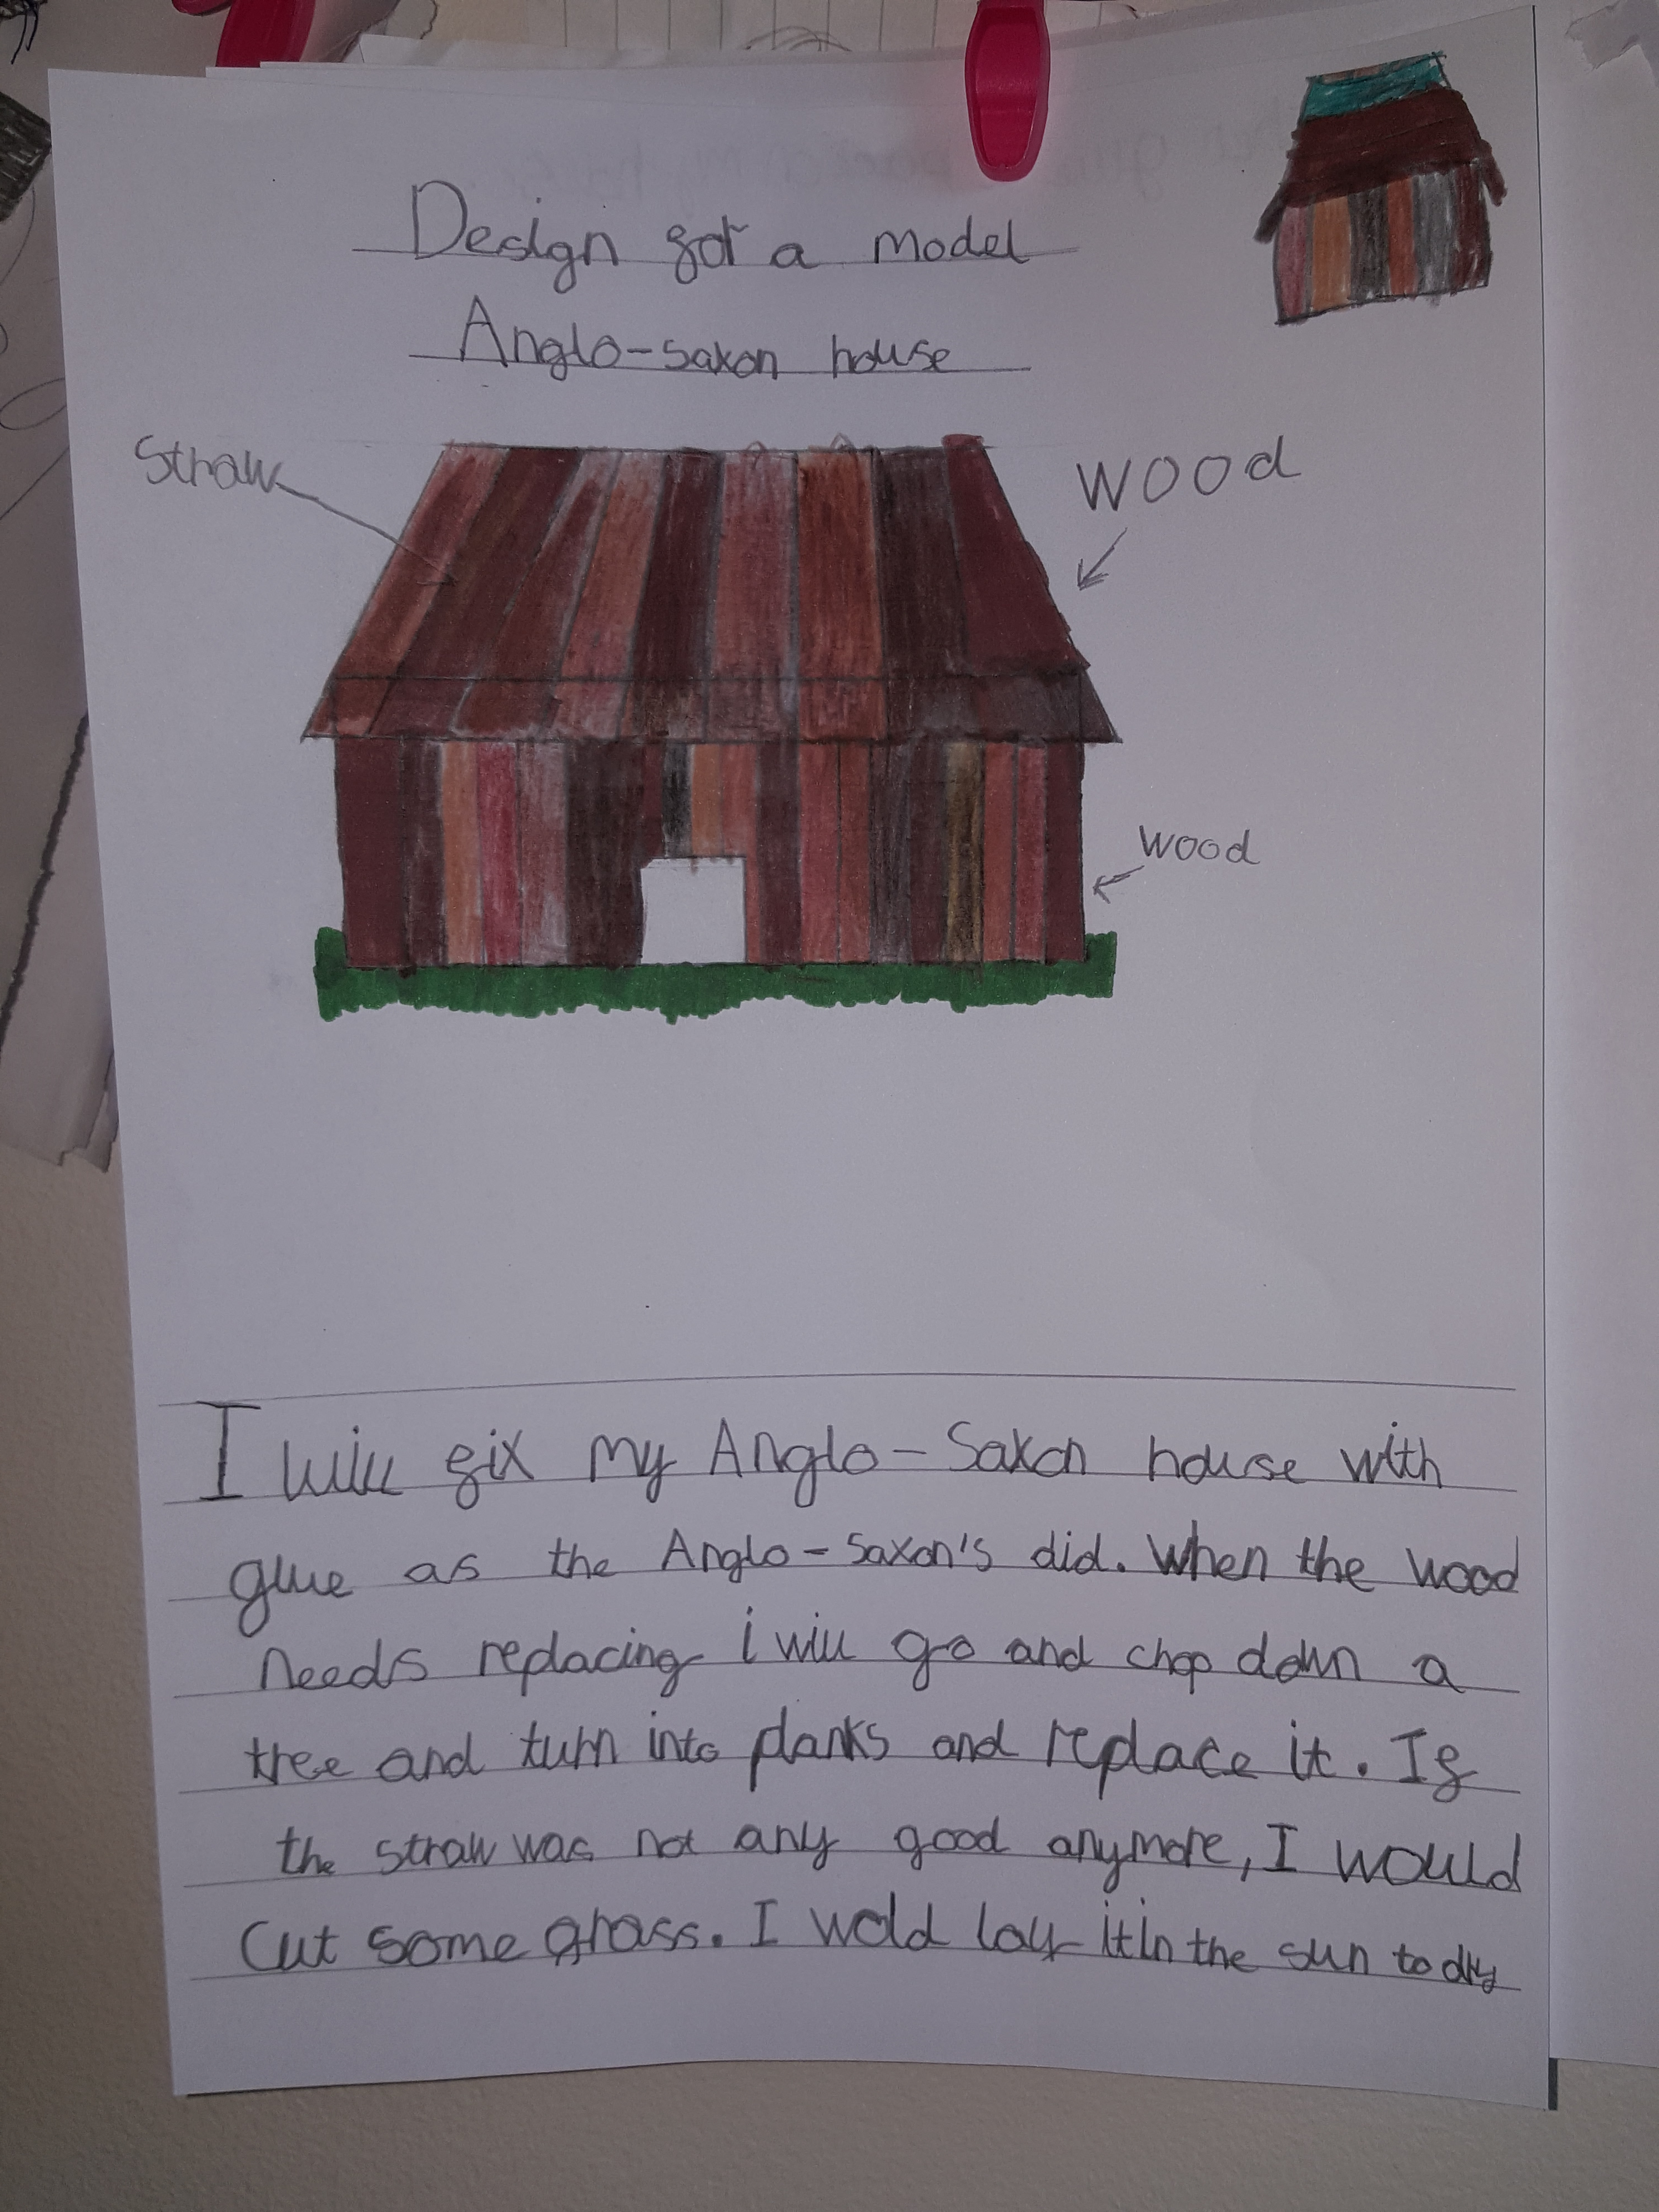 Design for a model
Anglo-saxon house
Straw
WOOD
wood
I will fix my Anglo-Saxon house with
glue as the Anglo-Saxon's did. When the wood
needs replacing i will go and chop down a
tree and turn into planks and replace it. If
the straw was not any good anymore, I would
Cut some grass. I wold lay it in the sun to dry